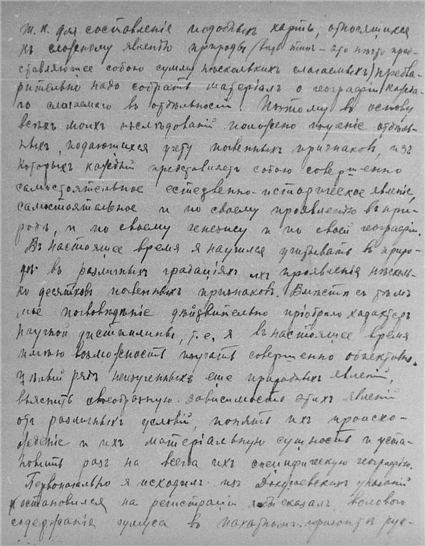 т. к. для составленія подобныхъ картъ, относящихся
къ сложному явленію природы (ведь типъ - это нѣчто пред-
ставляющее собою сумму нѣсколькихъ слагаемыхъ) предва-
рительно надо собрать матеріалъ о географіи каждо-
го слагаемаго въ отдѣльности! Поэтому въ основу
всѣхъ моихъ изслѣдованій положено изученіе отдѣль-
ныхъ, поддающихся учету почвенныхъ признаковъ, изъ
которыхъ каждый представляетъ собою совершенно
самостоятельное естественно-историческое явленіе,
самостоятельное и по своему проявленію въ при-
родѣ, и по своему генезису и по своей географіи.
Въ настоящее время я научился учитывать въ приро-
дѣ въ различныхъ градаціяхъ ихъ проявленія нѣсколь-
ко десятковъ почвенныхъ признаковъ. Вмѣстѣ съ тѣмъ
мое почвовѣдѣніе дѣйствительно пріобрѣло характеръ
научной дисциплины, т. е. я въ настоящее время
имѣю возможность изучать совершенно объективно
цѣлый рядъ неизученныхъ еще природныхъ явленій,
выяснить своеобразную зависимость этихъ явленій
отъ различныхъ условій, понять ихъ происхо-
жденіе и ихъ матеріальную сущность и уста-
новить разъ на всегда ихъ специфическую географію.
Первоначально я исходилъ изъ Докучаевскихъ указаній
и остановился на регистраціи
содержанія гумуса въ пахотномъ горизонтѣ рус-